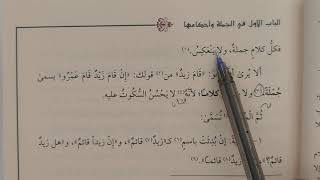 الباب الأول في الجملة وأحكامها
فكلُّ كلامٍ جملةٌ، ولا يَنْعَكِسُ (١)
ألا يُرى نحوُ: «قَامَ زَيْدٌ» من قولك: «إِنْ قَامَ زَيْدٌ قَامَ عَمْرٌو» يسمى
جُمْلَةً ولا كلاماً؛ لأنَّهُ لا يَحْسُنُ السُّكُوتُ عليه
ثُمَّ تُسَمَّى:
١ - إِنْ بُدِئَتْ باسمٍ كـ«زَيْدٌ قَائِمٌ»، و«إِنَّ زيداً قائمٌ»، و«هل
زيدٌ قائمٌ؟»، و زيدٌ قائماً».